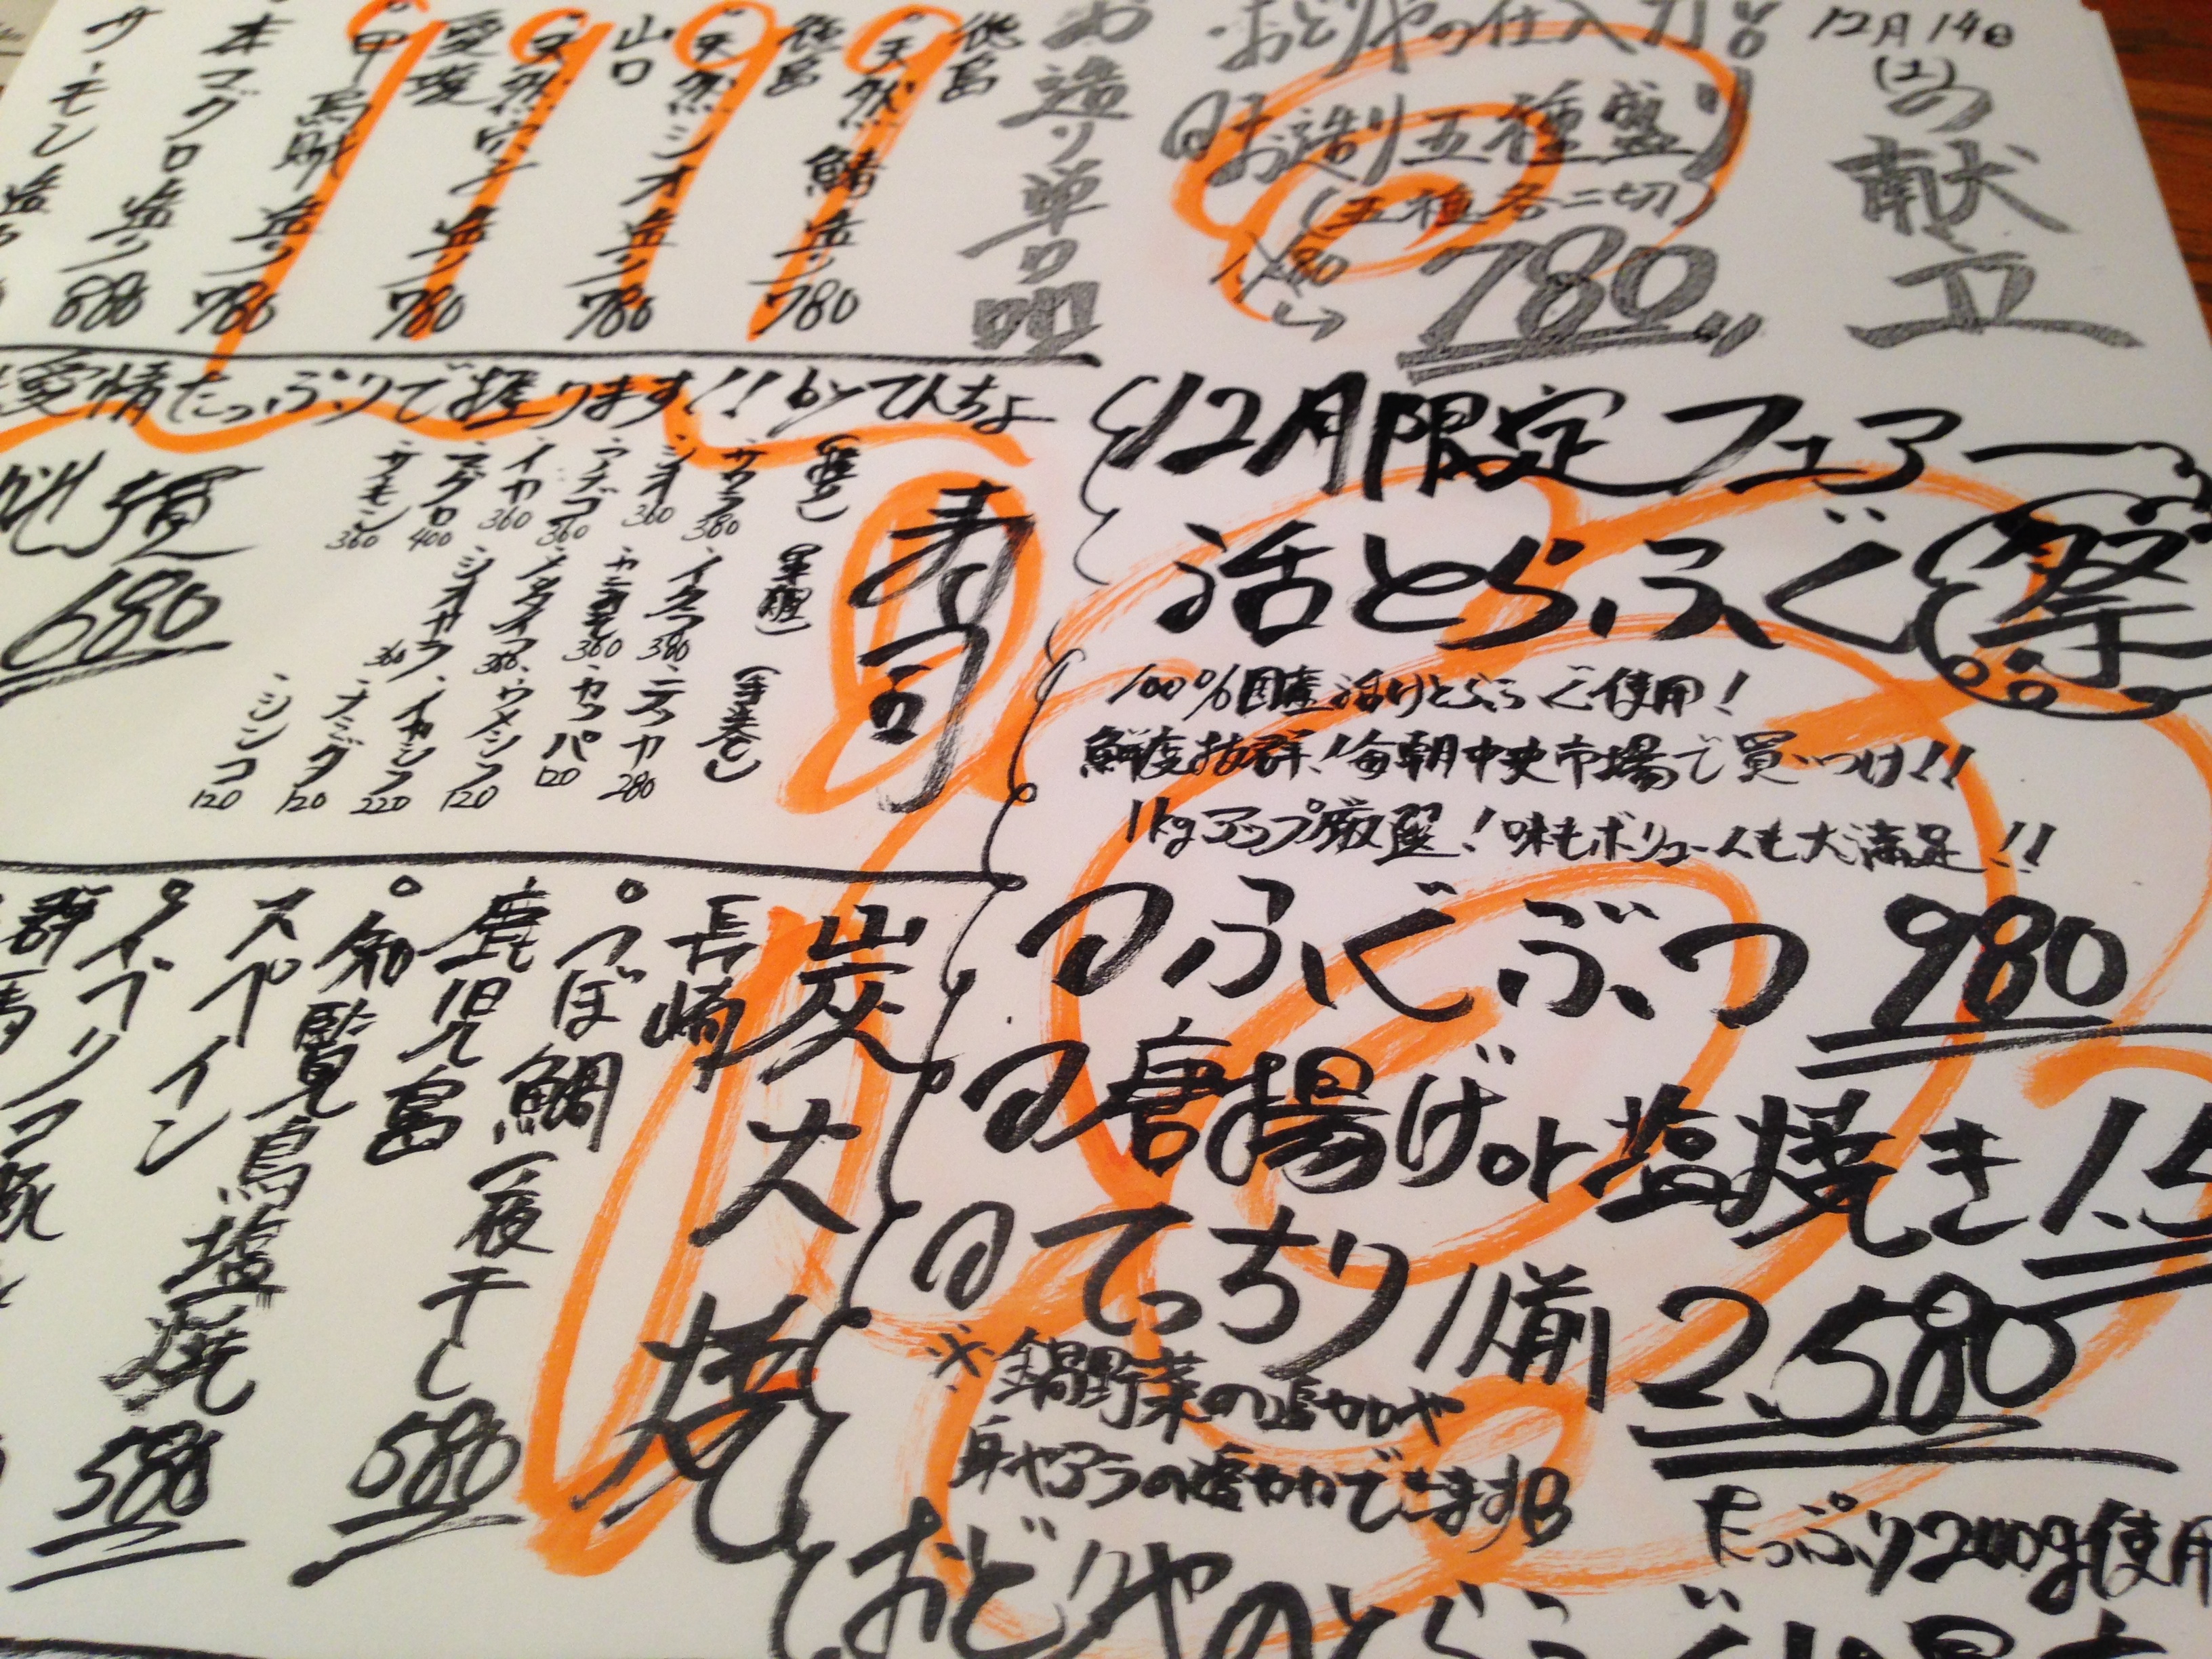 12月14日
(土)の
献立
・おどりやの仕入力!!
お造り五種盛り
(五種各二切)
780
お造り単品
徳島
天然鯖造り 780
徳島
天然シオ造り 780
山口
天然穴子造り 780
愛媛
甲烏賊造り
本マグロ造り 780
サーモン造り 680
愛情たっぷりで握ります!! byてんちょ
寿司
(握り)
サワラ 380
シオ 360
アナゴ 360
イカ 360
マグロ 400
サーモン 360
(軍艦)
イクラ 380
カニミソ 360
(手巻き)
カッパ 120
ウメシソ 120
イカシソ 220
シンコ 120
680
12月限定フェアー
活とらふぐ祭
100%国産活けとらふぐ使用!
鮮度抜群!毎朝中央市場で買いつけ!!
1kgアップ厳選!味もボリュームも大満足!!
ふぐぶつ 980
唐揚げor塩焼き 1.5
てっちり1人前 2,580
※鍋野菜の追加や
身やアラの追加できます
たっぷり200g使用
おどりやのとらふぐは最大
炭火焼
長崎
つぼ鯛一夜干し 580
鹿児島
知覧鳥塩焼 580
スペイン
イベリコ豚
群馬